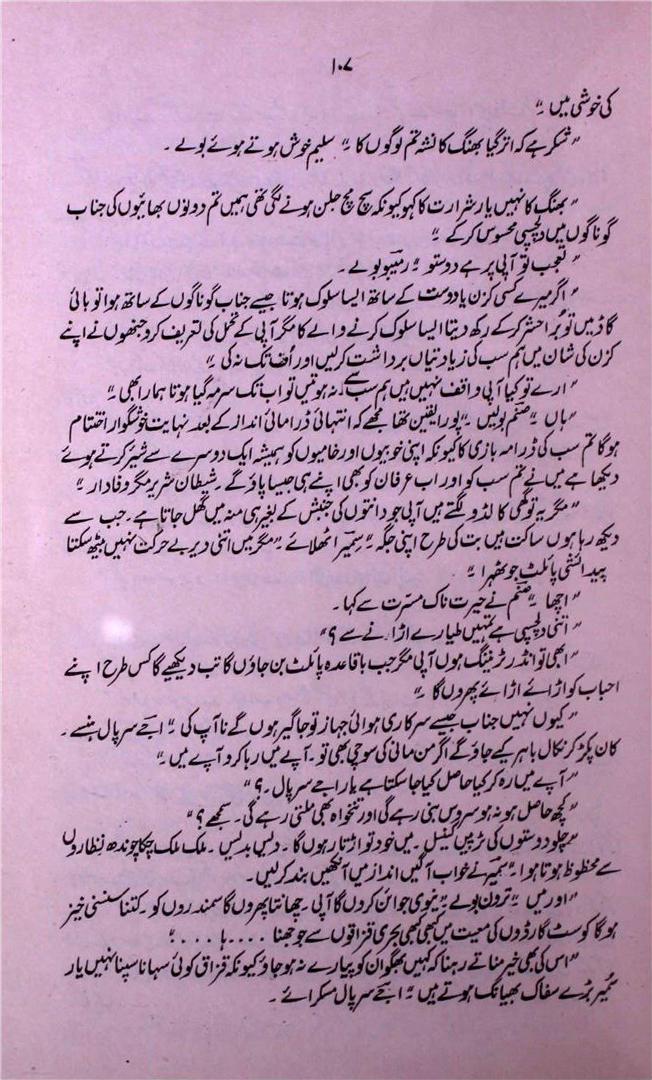 ۱۰۷
کی خوشی میں ۔"
"شکر ہے کہ اتر گیا بھنگ کا نشہ تم لوگوں کا ۔" سلیم خوش ہوتے ہوئے بولے ۔
"بھنگ کا نہیں یار شرارت کا کہو کیونکہ سچ مچ جلن ہونے لگی تھی ہمیں تم دونوں بھائیوں کی جناب
گوناگوں میں دلچسپی محسوس کر کے ۔"
"تعجب تو آپی پر ہے دوستو ۔" بولے ۔
"اگر میرے کسی کزن یا دوست کے ساتھ ایسا سلوک ہوتا جیسے جناب گوناگوں کے ساتھ ہوا تو بائی
گاڈ میں تو بُرا حشر کر کے رکھ دیتا ایسا سلوک کرنے والے کا مگر آپی کے تحمل کی تعریف کرو جنھوں نے اپنے
کزن کی شان میں ہم سب کی زیادتیاں برداشت کر لیں اور اُف تک نہ کی ۔"
"ارے تو کیا آپی واقف نہیں ہیں ہم سب سے ۔ نہ ہوتیں تو اب تک سرمہ گیا ہوتا ہمارا بھی ۔"
"ہاں ۔" صنم بولیں ۔ "پورا یقین تھا مجھے کہ انتہائی ڈرامائی انداز کے بعد نہایت خوشگوار اختتام
ہوگا تم سب کی ڈرامہ بازی کا کیونکہ اپنی خوبیوں اور خامیوں کو ہمیشہ ایک دوسرے سے شیئر کرتے ہوئے
دیکھا ہے میں نے تم سب کو اور اب عرفان کو بھی اپنے ہی جیسا پاؤ گے ۔ شیطان شریر مگر وفادار ۔"
"مگر یہ تو گھی کا لڈو لگتے ہیں آپی جو دانتوں کی جنبش کے بغیر ہی منہ میں گھل جاتا ہے ۔ جب سے
دیکھ رہا ہوں ساکت ہیں بت کی طرح اپنی جگہ ۔" سمیر اٹھلائے ۔ "مگر میں اتنی دیر بے حرکت نہیں بیٹھ سکتا
پیدائشی پائلٹ جو ٹھہرا ۔"
"اچھا ۔" صنم نے حیرت ناک مسرت سے کہا ۔
"اتنی دلچسپی ہے تمہیں طیارے اڑانے سے ؟"
"ابھی تو انڈر ٹریننگ ہوں آپی مگر جب باقاعدہ پائلٹ بن جاؤں گا تب دیکھیے گا کس طرح اپنے
احباب کو اڑائے اڑائے پھروں گا ۔"
"کیوں نہیں جناب جیسے سرکاری ہوائی جہاز تو جاگیر ہوں گے نا آپ کی ۔" اجے سرپال ہنسے ۔
کان پکڑ کر نکال باہر کیے جاؤ گے اگر من مانی کی سوچی بھی تو ۔ آپے میں رہا کرو آپے میں ۔"
"آپے میں رہ کر کیا حاصل کیا جا سکتا ہے یار اجے سرپال ۔ ؟"
"کچھ حاصل ہو نہ ہو سروس بنی رہے گی اور تنخواہ بھی ملتی رہے گی ۔ سمجھے ؟"
"چلو دوستوں کی ٹرپس کینسل ۔ میں خود تو اڑتا رہوں گا ۔ دیس بدیس ۔ ملک ملک چکاچوندھ نظاروں
سے محظوظ ہوتا ہوا ۔" سمیر نے خواب آگیں انداز میں آنکھیں بند کر لیں ۔
"اور میں ۔" ترون بولے ۔ "نیوی جوائن کروں گا آپی ۔ چھانتا پھروں گا سمندروں کو ۔ کتنا سنسنی خیز
ہوگا کوسٹ گارڈوں کی معیت میں کبھی کبھی بحری قزاقوں سے جوجھنا ۔ ۔ ۔ ۔ ہا ۔ ۔ ۔ ۔ ۔"
"اس کی بھی خیر مناتے رہنا کہ کہیں بھگوان کو پیارے نہ ہو جاؤ کیونکہ قزاق کوئی سہانا سپنا نہیں یار
سمیر بڑے سفاک بھیانک ہوتے ہیں ۔" اجے سرپال مسکرائے ۔